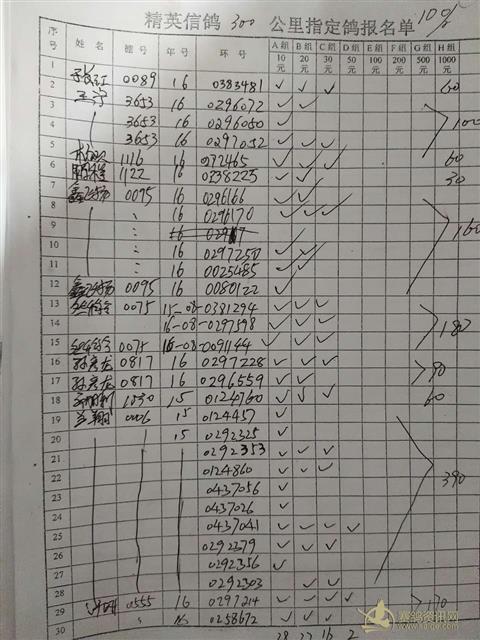 精英信鸽 300 公里指定鸽报名单 10%
序号 姓名 棚号 年号 环号 A组10元 B组20元 C组30元 D组50元 E组100元 F组200元 G组500元 H组1000元
1
2 0089 16 0383481 ✓ ✓ ✓ 60
3 王宁 3653 16 0296072 ✓ ✓
4 3653 16 0296050 ✓ 100
5 3653 16 0297052 ✓ ✓ ✓
6 1116 16 072465 ✓ ✓ ✓ 60
7 1122 16 0238225 ✓ ✓ 30
鑫飞扬 0095 16 0296166 ✓ ✓
8 16 0296170 ✓ ✓ ✓
9 160
10 16 0297250 ✓
11 16 0025485 ✓
12 鑫飞扬 0095 16 0080122 ✓ ✓
13 0075 15-08-0381294 ✓ ✓ ✓
14 16-08-0297598 ✓ ✓ ✓ 180
15 0075 16-08-0091144 ✓ ✓ ✓
16 孙彦龙 0817 16 0297228 ✓ ✓ ✓ 90
17 孙彦龙 0817 16 0296559 ✓ ✓
18 1030 15 0124760 ✓ ✓ ✓ 60
19 15 0124457 ✓
20 15 0292325 ✓
21 0292353 ✓ ✓ ✓
22 0124860 ✓ ✓ ✓
23 0437056 ✓ 390
24 0437026 ✓
25 0437041 ✓ ✓ ✓ ✓
26 0292279 ✓ ✓ ✓
27 0292356 ✓
28 0292303 ✓ ✓
29 0555 16 0297214 ✓ ✓ ✓ ✓ 170
30 16 0258672 ✓ ✓ ✓
28 16 2
赛鸽资讯网
www.saige.com